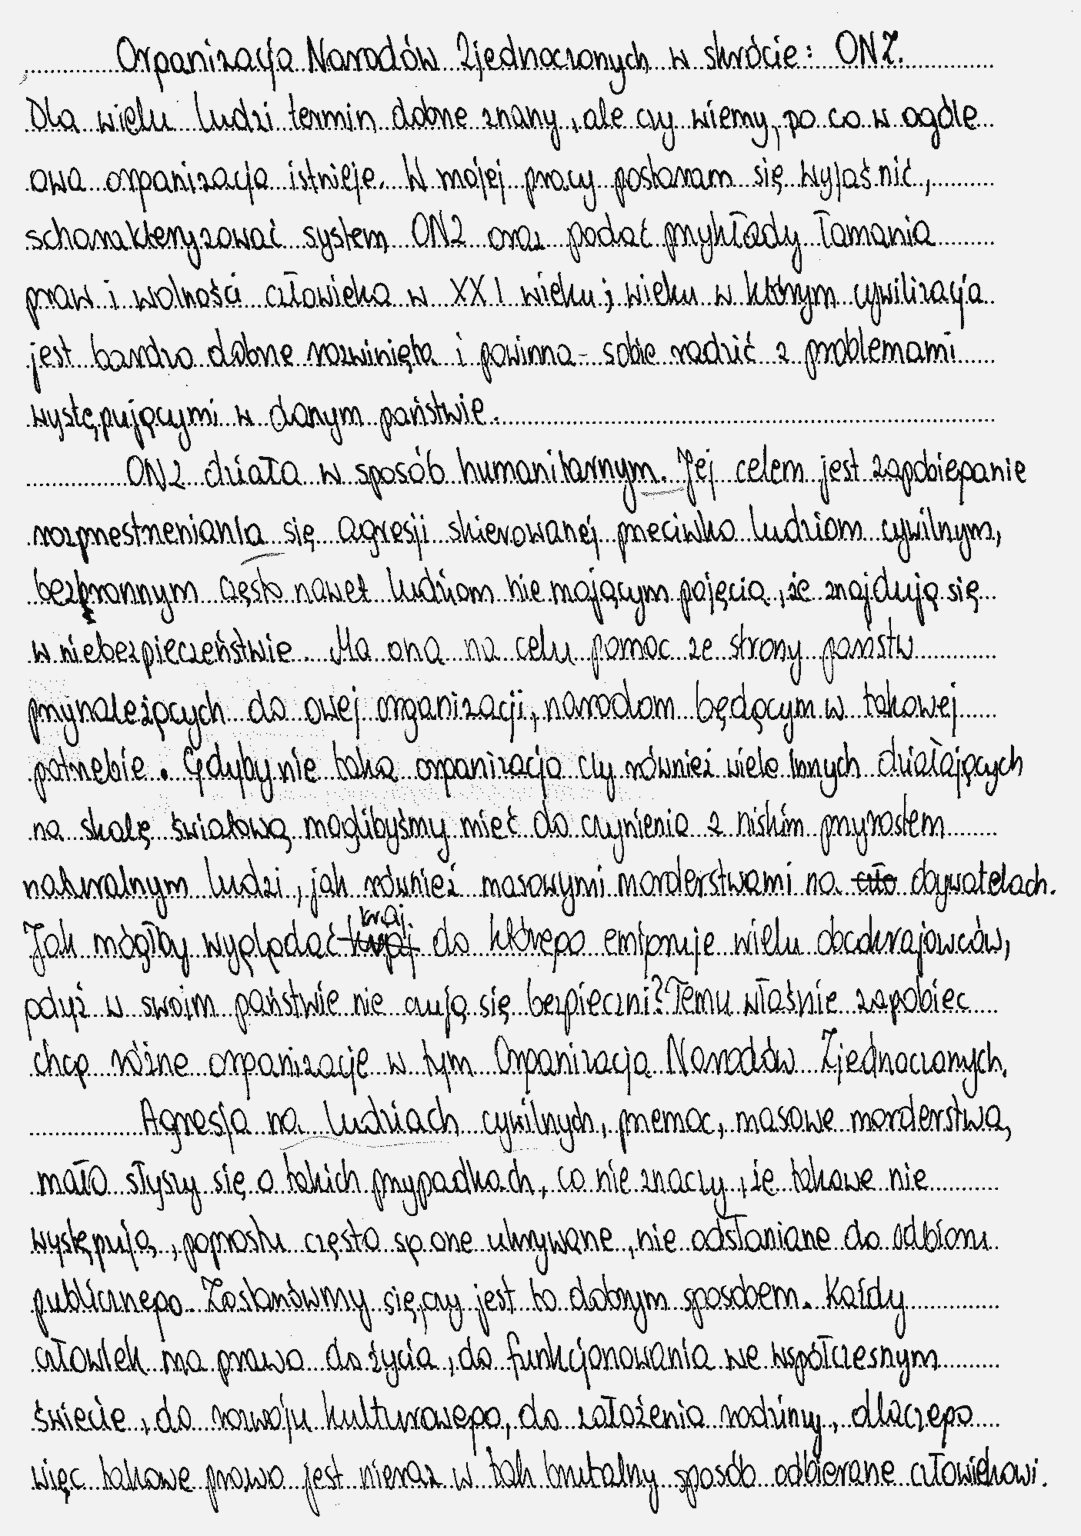 Organizacja Narodów Zjednoczonych w skrócie: ONZ.
Dla wielu ludzi termin dobrze znany, ale czy wiemy, po co w ogóle
owa organizacja istnieje. W mojej pracy postaram się wyjaśnić,
scharakteryzować system ONZ oraz podać przykłady łamania
praw i wolności człowieka w XXI wieku; wieku w którym cywilizacja
jest bardzo dobrze rozwinięta i powinna sobie radzić z problemami
występującymi w danym państwie.
ONZ działa w sposób humanitarnym. Jej celem jest zapobieganie
rozprzestrzeniania się agresji skierowanej przeciwko ludziom cywilnym,
bezbronnym często nawet ludziom nie mającym pojęcia, że znajdują się
w niebezpieczeństwie. Ma ona na celu pomoc ze strony państw
przynależących do owej organizacji, narodom będącym w takowej
potrzebie. Gdyby nie taka organizacja czy również wiele innych działających
na skalę światową moglibyśmy mieć do czynienia z niskim przyrostem
naturalnym ludzi, jak również masowymi morderstwami na obywatelach.
Jak mógłby wyglądać kraj do którego emigruje wielu obcokrajowców,
gdyż w swoim państwie nie czują się bezpieczni? Temu właśnie zapobiec
chcą różne organizacje w tym Organizacja Narodów Zjednoczonych.
Agresja na ludziach cywilnych, przemoc, masowe morderstwa,
mało słyszy się o takich przypadkach, co nie znaczy, że takowe nie
występują, poprostu często są one ukrywane, nie odsłaniane do odbioru
publicznego. Zastanówmy się, czy jest to dobrym sposobem. Każdy
człowiek ma prawo do życia, do funkcjonowania we współczesnym
świecie, do rozwoju kulturowego, do założenia rodziny, dlaczego
więc takowe prawo jest nieraz w tak brutalny sposób odbierane człowiekowi.